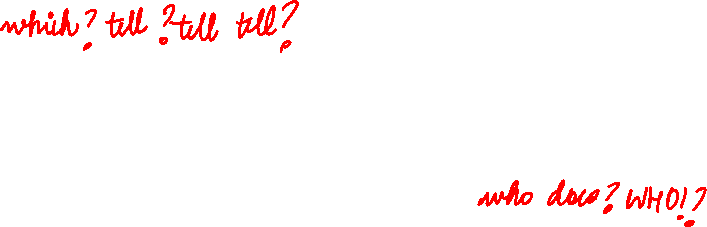 which? tell? tell tell?
who does? WHO!?